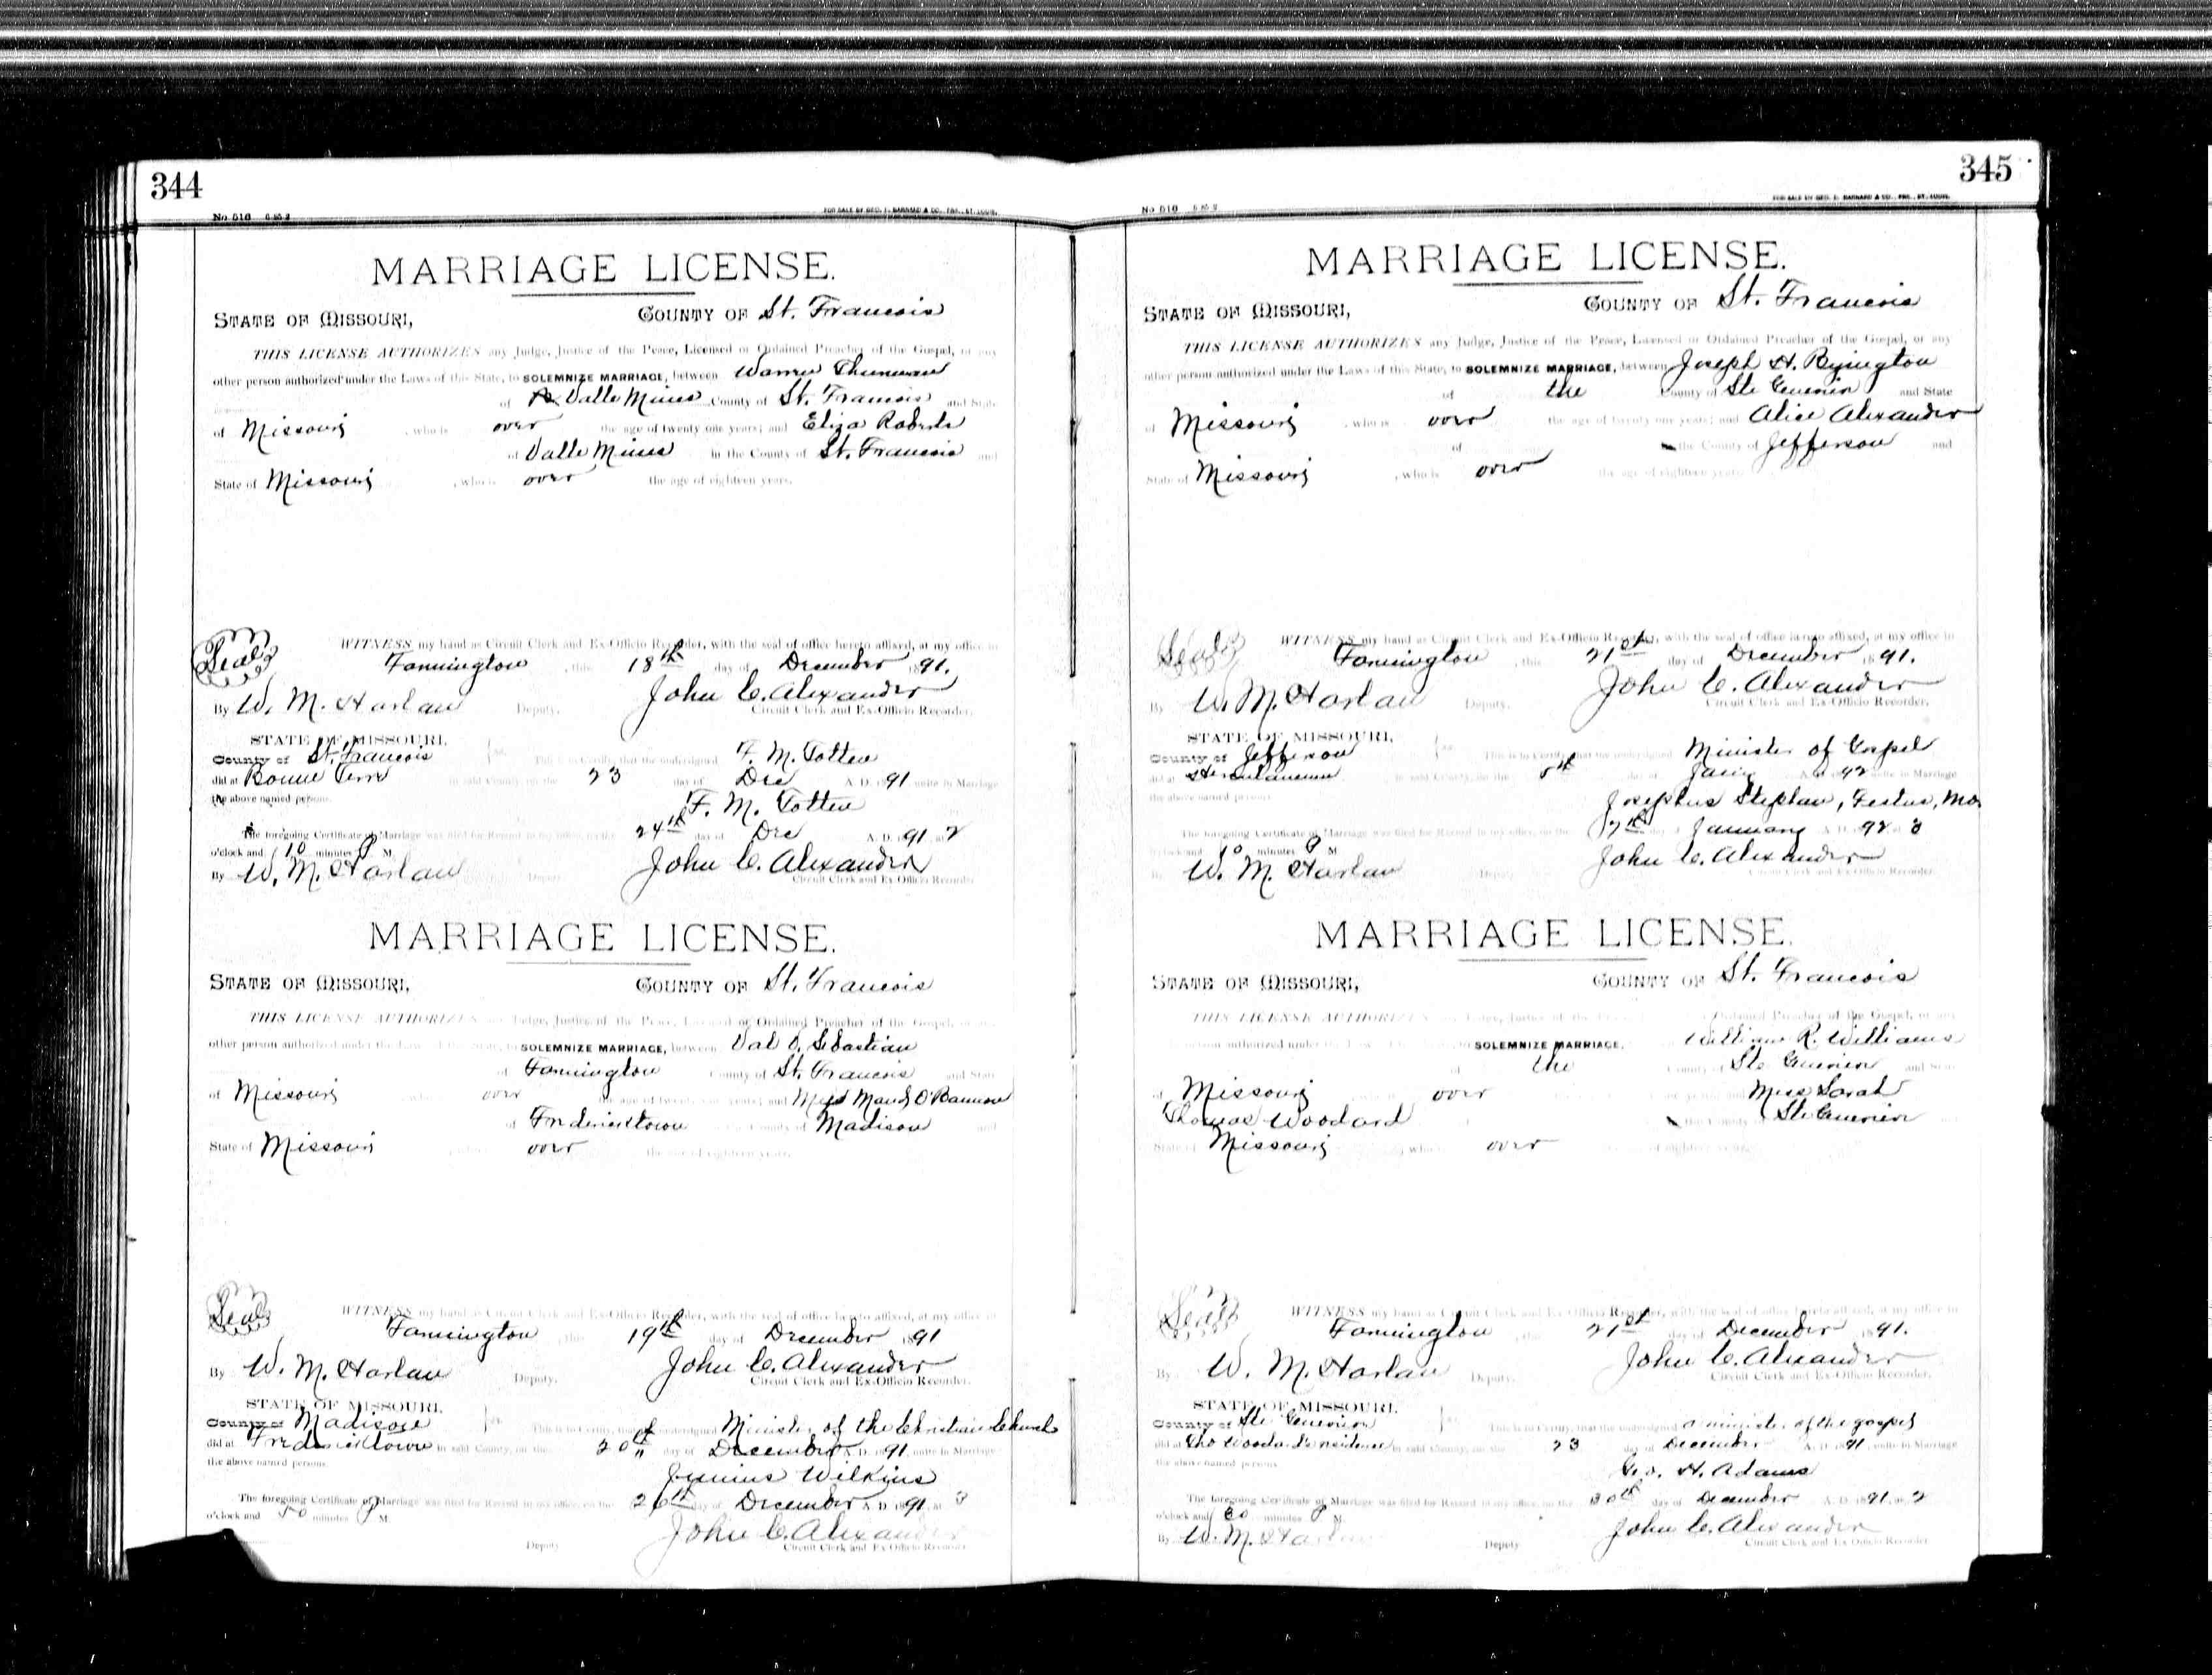 344
No 516 6 85 2
FOR SALE BY GEO. D. BARNARD & CO., PRS., ST. LOUIS.
MARRIAGE LICENSE.
STATE OF MISSOURI, COUNTY OF St. Francois
THIS LICENSE AUTHORIZES any Judge, Justice of the Peace, Licensed or Ordained Preacher of the Gospel, or any
other person authorized under the Laws of this State, to SOLEMNIZE MARRIAGE, between Warren Thurman
of Valle Mines County of St. Francois and State
of Missouri, who is over the age of twenty one years; and Eliza Roberts
of Valle Mines in the County of St. Francois and
State of Missouri, who is over the age of eighteen years.
WITNESS my hand as Circuit Clerk and Ex-Officio Recorder, with the seal of office hereto affixed, at my office in
Seal Farmington this 18th day of December 1891.
By W. M. Harlan Deputy. John C. Alexander
Circuit Clerk and Ex-Officio Recorder.
STATE OF MISSOURI,
County of St. Francois ss. This is to Certify, that the undersigned F. M. Totten
did at Bonne Terre in said County, on the 23 day of Dec A. D. 1891 unite in Marriage
the above named persons. F. M. Totten
The foregoing Certificate of Marriage was filed for Record in my office, on the 24th day of Dec A. D. 1891 at 2
o'clock and 10 minutes P M.
By W. M. Harlan Deputy John C. Alexander
Circuit Clerk and Ex-Officio Recorder
MARRIAGE LICENSE.
STATE OF MISSOURI, COUNTY OF St. Francois
THIS LICENSE AUTHORIZES any Judge, Justice of the Peace, Licensed or Ordained Preacher of the Gospel, or any
other person authorized under the Laws of this State, to SOLEMNIZE MARRIAGE, between Val O. Sebastian
of Farmington County of St. Francois and State
of Missouri who is over the age of twenty one years; and Miss Maud O'Bannon
of Fredericktown in the County of Madison and
State of Missouri over the age of eighteen years.
WITNESS my hand as Circuit Clerk and Ex-Officio Recorder, with the seal of office hereto affixed, at my office in
Seal Farmington this 19th day of December 1891
By W. M. Harlan Deputy. John C. Alexander
Circuit Clerk and Ex-Officio Recorder.
STATE OF MISSOURI,
County of Madison ss. This is to Certify, that the undersigned Minister of the Christian Church
did at Fredericktown in said County, on the 20th day of December A. D. 1891 unite in Marriage
the above named persons. Junius Wilkins
The foregoing Certificate of Marriage was filed for Record in my office, on the 26th day of December A. D. 1891 at 3
o'clock and 50 minutes P M.
John C. Alexander
Deputy Circuit Clerk and Ex Officio Recorder
345
No 516 6 85 2
FOR SALE BY GEO. D. BARNARD & CO., PRS., ST. LOUIS.
MARRIAGE LICENSE.
STATE OF MISSOURI, COUNTY OF St. Francois
THIS LICENSE AUTHORIZES any Judge, Justice of the Peace, Licensed or Ordained Preacher of the Gospel, or any
other person authorized under the Laws of this State, to SOLEMNIZE MARRIAGE, between Joseph H. Byington
of the County of Ste Genevieve and State
of Missouri, who is over the age of twenty one years; and Alice Alexander
of the County of Jefferson and
State of Missouri, who is over the age of eighteen years
WITNESS my hand as Circuit Clerk and Ex-Officio Recorder, with the seal of office hereto affixed, at my office in
Seal Farmington, this 21st day of December 1891.
By W. M. Harlan Deputy. John C. Alexander
Circuit Clerk and Ex-Officio Recorder.
STATE OF MISSOURI,
County of Jefferson ss. This is to Certify, that the undersigned Minister of Gospel
did at Herculaneum in said County, on the 5th day of Jany A. D. 1892 unite in Marriage
the above named persons Josephus Stephan, Festus, Mo.
The foregoing Certificate of Marriage was filed for Record in my office, on the 7th day of January A. D. 1892 at 3
o'clock and 10 minutes P M
By W. M. Harlan Deputy John C. Alexander
Circuit Clerk and Ex-Officio Recorder
MARRIAGE LICENSE.
STATE OF MISSOURI, COUNTY OF St. Francois
THIS LICENSE AUTHORIZES any Judge, Justice of the Peace Ordained Preacher of the Gospel, or any
person authorized under the Laws to SOLEMNIZE MARRIAGE, William R. Williams
of the County of Ste Genevieve and State
of Missouri over Miss Sarah
Thomas Woodard the County Ste Genevieve
State of Missouri, who is over of eighteen years.
WITNESS my hand as Circuit Clerk and Ex-Officio Recorder, with the seal of office hereto affixed, at my office in
Seal Farmington, this 21st day of December 1891.
By W. M. Harlan Deputy. John C. Alexander
Circuit Clerk and Ex-Officio Recorder.
STATE OF MISSOURI,
County of Ste Genevieve This is to Certify, that the undersigned a minister of the gospel
did at Tho Woodard's residence in said County, on the 23 day of December A. D. 1891, unite in Marriage
the above named persons Geo. H. Adams
The foregoing Certificate of Marriage was filed for Record in my office, on the 30th day of December A. D. 1891, at 2
o'clock and minutes P M.
By W. M. Harlan Deputy John C. Alexander
Circuit Clerk and Ex Officio Recorder